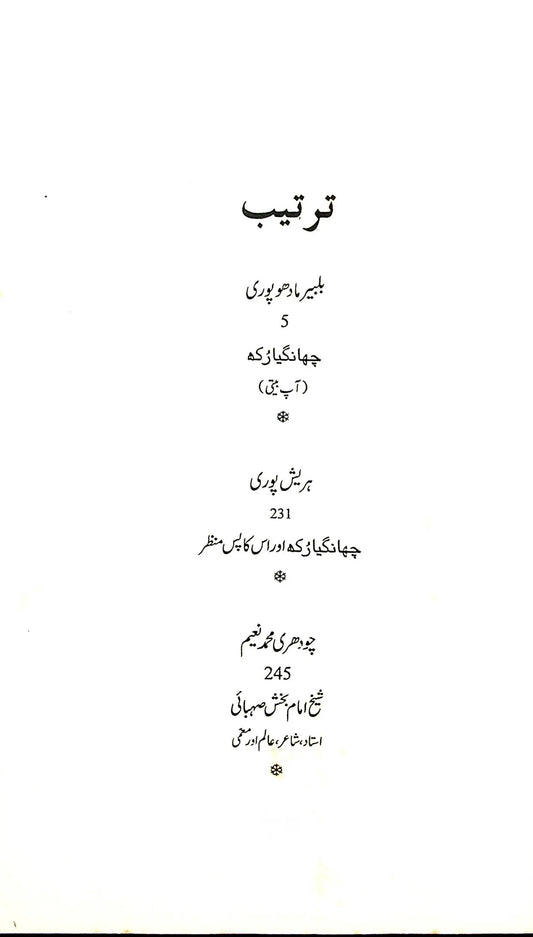 ترتیب
بلبیر مادھوپوری
5
چھانگیا رُکھ
(آپ بیتی)
ہریش پوری
231
چھانگیا رُکھ اور اس کا پس منظر
چودھری محمد نعیم
245
شیخ امام بخش صہبائی
استاد، شاعر، عالم اور معمّی